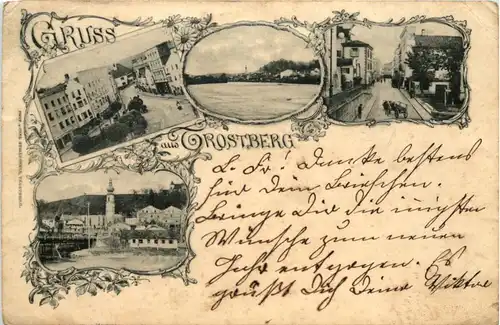 GRUSS
aus TROSTBERG
L. Fr! Danke bestens
für Dein Briefchen.
Bringe Dir die innigsten
Wünsche zum neuen
Jahr entgegen. Es
grüßt Dich Deine Viktor